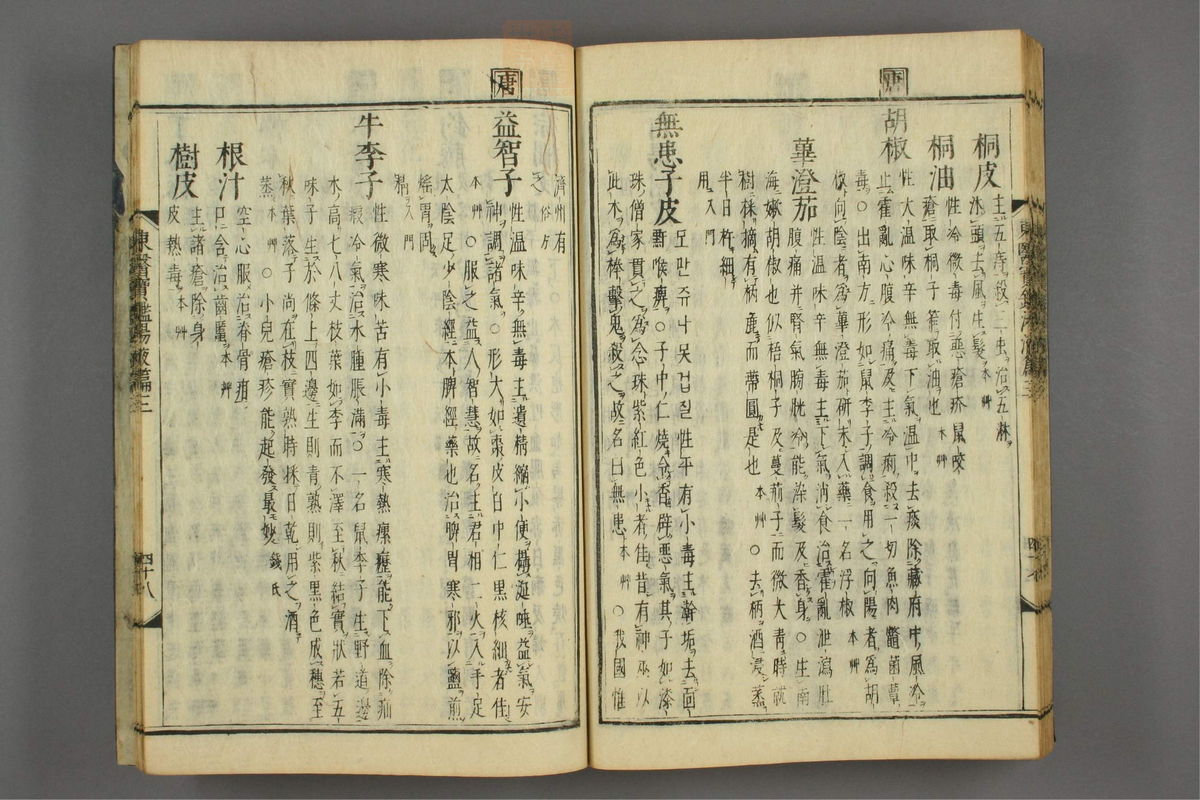 桐皮 主五痔殺三虫治五淋
沐頭去風生髮 本艸
桐油 性冷微毒付惡瘡疥鼠咬
瘡取桐子窄取油也 本艸
唐
胡椒 性大温味辛無毒下氣温中去痰除藏府中風冷
止霍亂心腹冷痛及主冷痢殺一切魚肉鱉菌蕈
毒○出南方形如鼠李子調食用之向陽者為胡
椒向陰者為蓽澄茄研末入藥一名浮椒 本艸
蓽澄茄 性温味辛無毒主下氣消食治霍亂泄瀉肚
腹痛并腎氣膀胱冷能染髮及香身○生南
海嫰胡椒也似梧桐子及蔓茄子而微大青時就
樹採摘有柄麁而蔕圓是也 本艸 ○去柄酒浸蒸
半日杵細
用 入門
無患子皮 모관쥬나모겁질 性平有小毒主澣垢去面
䵟喉痺○子中仁燒令香辟惡氣其子如漆
珠僧家貫之為念珠紫紅色小者佳昔有神巫以
此木為棒擊鬼殺之故名曰無患 本艸 ○我國惟
濟州有
之 俗方
唐
益智子 性温味辛無毒主遺精縮小便攝涎唾益氣安
神調諸氣○形大如棗皮白中仁黑核細者佳
本艸 ○服之益人智慧故名主君相二火入手足
太陰足少陰經本脾經藥也治脾胃寒邪以鹽煎
煩胃同
稍 入門
牛李子 性微寒味苦有小毒主寒熱瘰癧能下血除疝
瘕冷氣治水腫脹滿○一名鼠李子生野道邊
木高七八丈枝葉如李而不澤至秋結實狀若五
味子生於條上四邊生則青熟則紫黑色成穗至
秋葉落子尚在枝實熟時採日乾用之酒
蒸 本艸 ○小兒瘡疹能起發最妙 錢氏
根汁 空心服治脊骨疳
口含治齒䘌 本艸
樹皮 主諸瘡除身
皮熱毒 本艸
東醫寶鑑湯液篇三
四十八